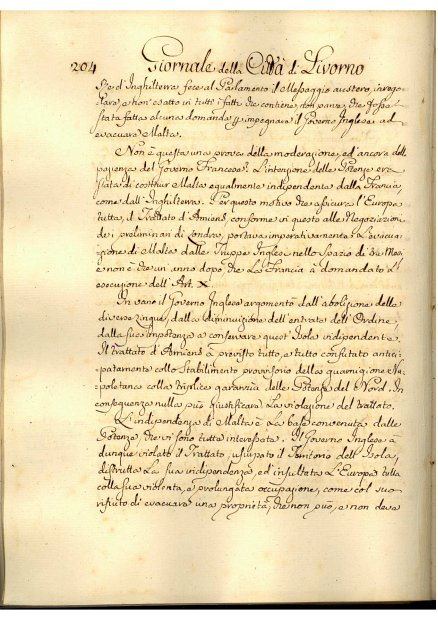 204 Giornale della Città di Livorno
Re d'Inghilterra fece al Parlamento il Messaggio austero, irrego-
lare, e non esatto in tutti i fatti che contiene, non pareva, che fosse
stata fatta alcuna domanda p impegnare il Governo Inglese ad
evacuare Malta.
Non è questa una prova della moderazione, ed ancora della
pazienza del Governo Francese? L'intenzione delle Potenze era
stata di costituir Malta egualmente indipendente dalla Francia,
come dall'Inghilterra. Per questo motivo che assicura l'Europa
tutta, il Trattato d'Amiens, conforme in questo alle Negoziazioni
de' preliminari di Londra, portava imperativamente L'evacua-
zione di Malta dalle Truppe Inglesi nello Spazio di tre Mesi,
e non è che un anno dopo che La Francia à domandato L'
esecuzione dell'Art. X.
In vano il Governo Inglese argomentò dall'abolizione delle
diverse lingue, dalla diminuzione dell'entrate dell'Ordine,
dalla sua impotenza a conservare quest'Isola indipendente.
Il trattato d'Amiens à previsto tutto, e tutto confutato antici-
patamente collo Stabilimento provvisorio della guarnigione Na-
poletana colla triplice garanzia delle Potenze del Nord. In
conseguenza nulla può giustificare La violazione del trattato.
L'indipendenza di Malta è La base convenuta dalle
Potenze, che vi sono tutte interessate. Il Governo Inglese à
dunque violato il Trattato, usurpato il Territorio dell'Isola,
distrutta La sua indipendenza, ed insultata L'Europa tutta
colla sua violenta, e prolungata occupazione, come col suo
rifiuto di evacuare una proprietà, che non può, e non deve